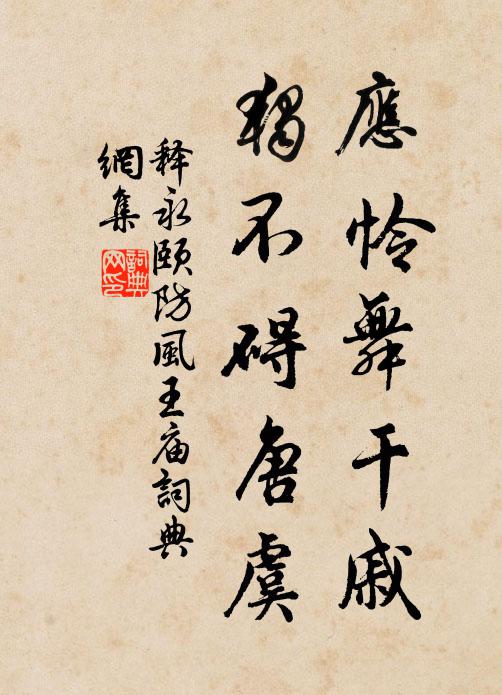 應怜舞干戚
獨不碍唐虞
释永颐防風王庙詞典
網集
詞典
网印